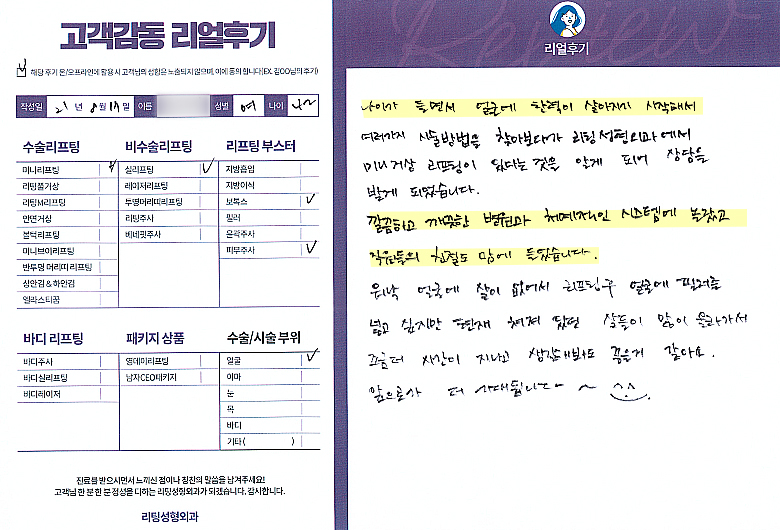 고객감동 리얼후기
해당 후기 온/오프라인에 활용 시 고객님의 성함은 노출되지 않으며, 이에 동의 합니다(EX. 김OO님의 후기)
작성일 21년 8월 19일 이름 성별 여 나이 42
수술리프팅
미니리프팅
리팅풀기상
리팅M리프팅
안면거상
본턱리프팅
미니브이리프팅
반투명 머리띠 리프팅
상안검 & 하안검
엘라스티꿈
비수술리프팅
실리프팅
레이저리프팅
투명머리띠리프팅
리팅주사
베네핏주사
리프팅 부스터
지방흡입
지방이식
보톡스
필러
윤곽주사
피부주사
바디 리프팅
바디주사
바디실리프팅
바디레이저
패키지 상품
영에이리프팅
남자CEO패키지
수술/시술 부위
얼굴
이마
눈
목
바디
기타( )
진료를 받으시면서 느끼신 점이나 칭찬의 말씀을 남겨주세요!
고객님 한 분 한 분 정성을 다하는 리팅성형외과가 되겠습니다. 감사합니다.
리팅성형외과
Review
리얼후기
나이가 들면서 얼굴에 탄력이 살아지기 시작해서
여러가지 시술방법을 찾아보다가 리팅성형외과에서
미니거상 리프팅이 있다는 것을 알게 되어 상담을
받게 되었습니다.
깔끔하고 깨끗한 병원과 체계적인 시스템에 놀랐고
직원들의 친절도 맘에 들었습니다.
워낙 얼굴에 살이 없어서 리프팅후 얼굴에 필러를
넣고 싶지만 현재 쳐져 있던 살들이 많이 올라가서
조금더 시간이 지나고 생각해봐도 좋을거 같아요.
앞으로가 더 기대됩니다~